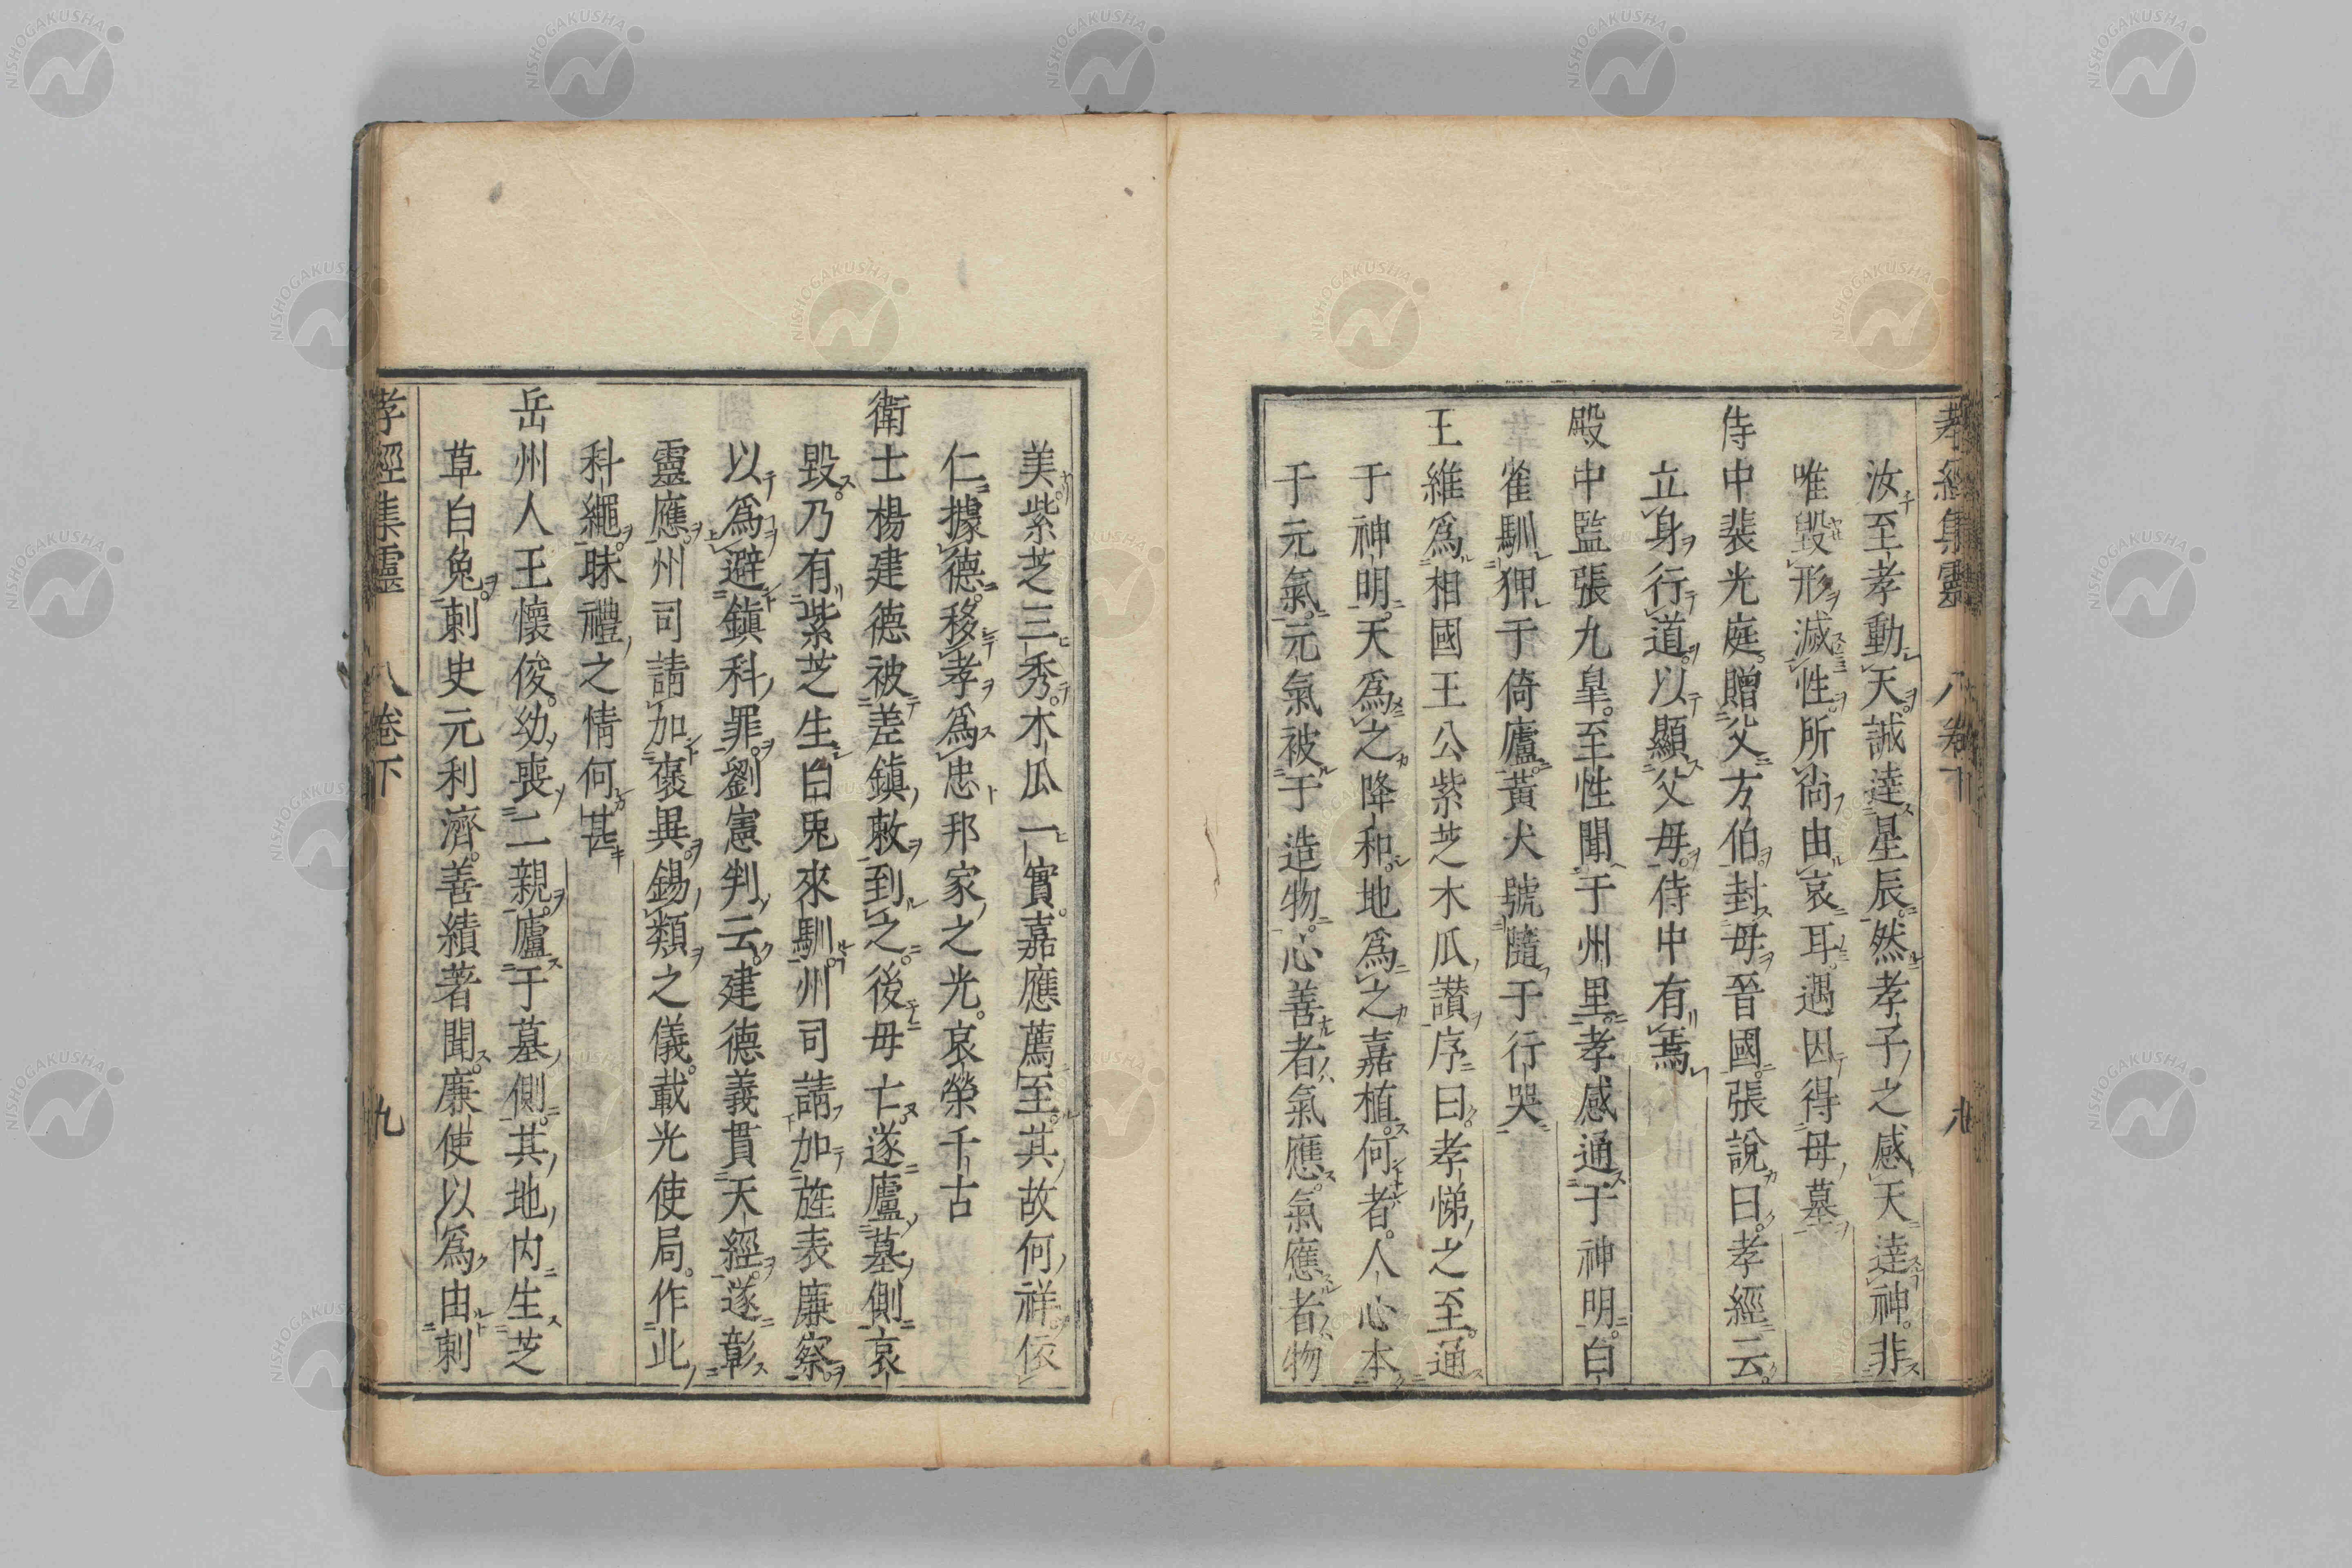 孝經集靈 卷下 九
汝至孝動天誠達星辰然孝子之感天達神非
唯毀形滅性所尚由哀耳遇因得母墓
侍中裴光庭贈父方伯封母晉國張說曰孝經云
立身行道以顯父母侍中有焉
殿中監張九皐至性聞于州里孝感通于神明白
雀馴狎于倚廬黃犬號隨于行哭
王維爲相國王公紫芝木瓜讃序曰孝悌之至通
于神明天爲之降和地爲之嘉植何者人心本
于元氣元氣被于造物心善者氣應氣應者物
美紫芝三秀木瓜一實嘉應薦至其故何祥依
仁據德移孝爲忠邦家之光哀榮千古
衛士楊建德被差鎮敕到之後母亡遂廬墓側哀
毀乃有紫芝生白兎來馴州司請加旌表廉察
以爲避鎮科罪劉憲判云建德義貫天經遂彰
靈應州司請加褒異錫類之儀載光使局作此
科繩昧禮之情何甚
岳州人王懷俊幼喪二親廬于墓側其地内生芝
草白兔刺史元利濟善績著聞廉使以爲由刺
孝經集靈 卷下 九
NISHOGAKUSHA